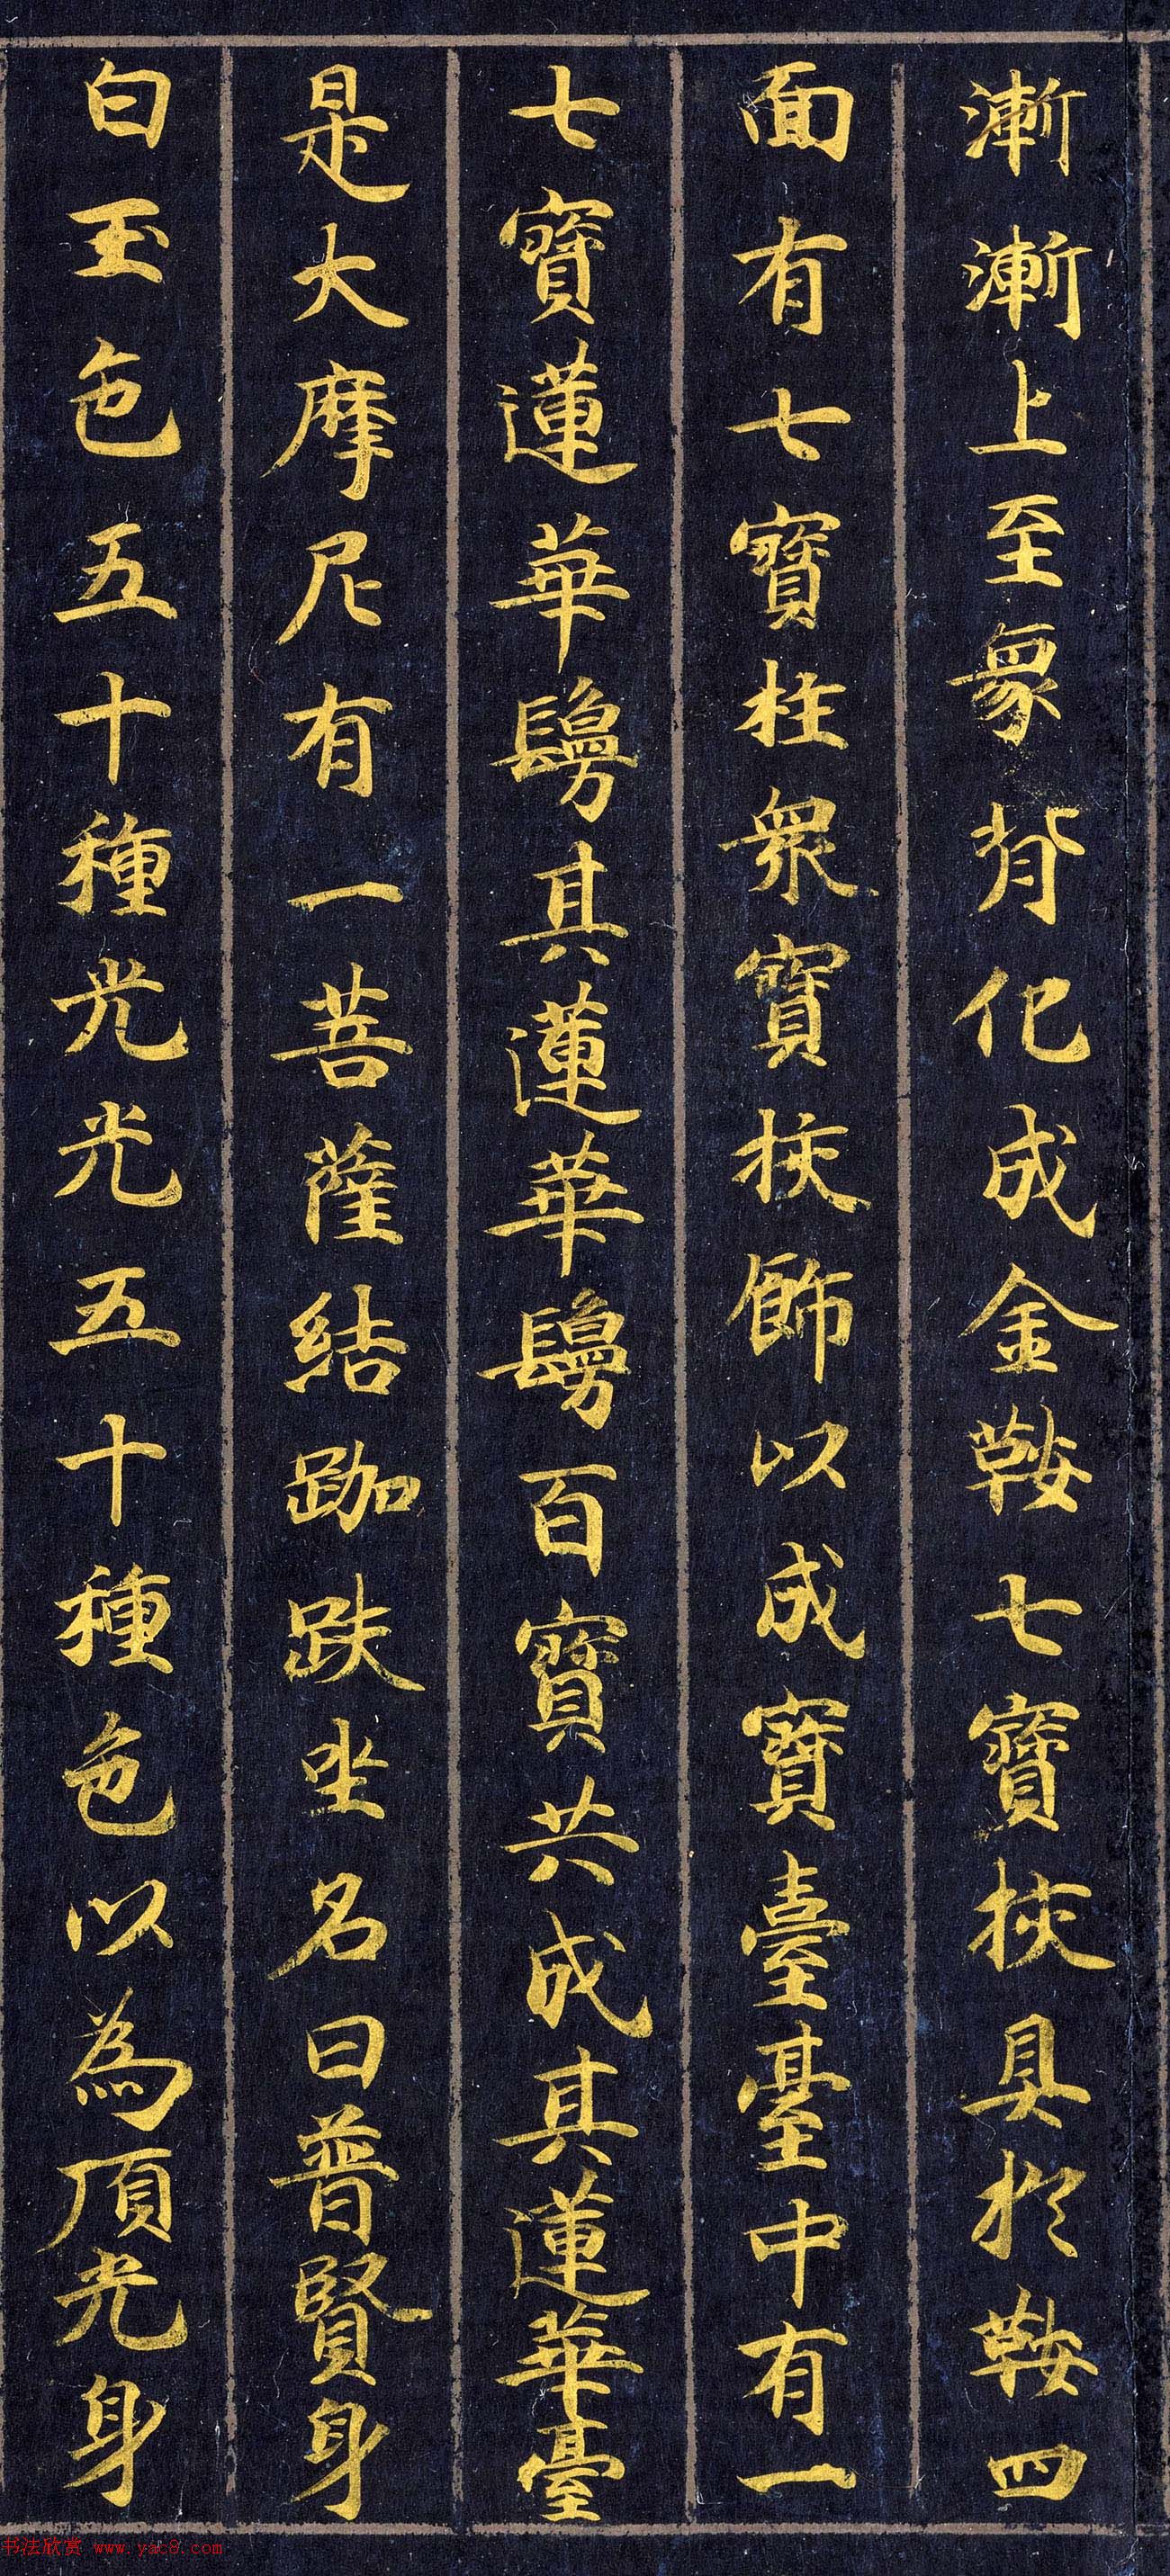 漸漸上至象背化成金鞍七寶挍具於鞍四
面有七寶柱衆寶挍飾以成寶臺臺中有一
七寶蓮華鬘其蓮華鬘百寶共成其蓮華臺
是大摩尼有一菩薩結跏趺坐名曰普賢身
白玉色五十種光光五十種色以為頂光身
书法欣赏 www.yac8.com